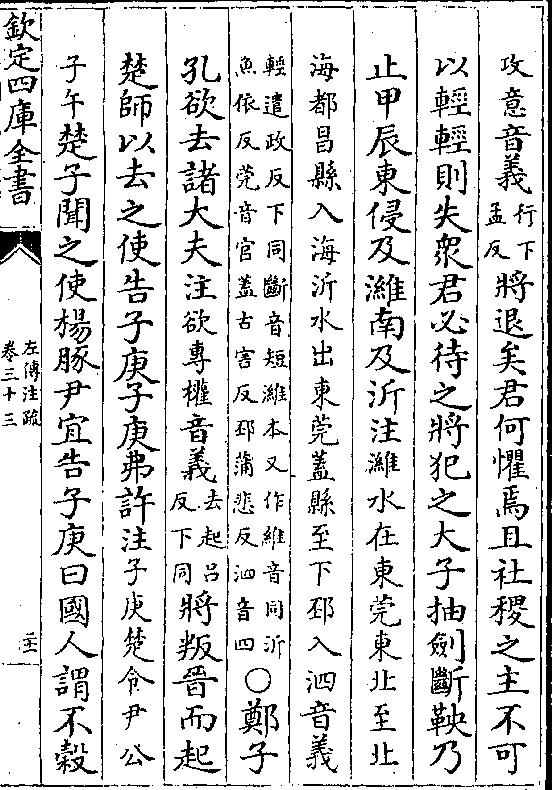 攻意音義行下孟反將退矣君何懼焉且社稷之主不可
以輕輕則失衆君必待之將犯之大子抽劍斷鞅乃
止甲辰東侵及濰南及沂注濰水在東莞東北至北
海都昌縣入海沂水出東莞蓋縣至下邳入泗音義
輕遣政反下同斷音短濰本又作維音同沂
魚依反莞音官蓋古害反邳蒲悲反泗音四○鄭子
孔欲去諸大夫注欲專權音義去起呂反下同將叛晉而起
楚師以去之使告子庚子庚弗許注子庚楚令尹公
子午楚子聞之使楊豚尹宜告子庚曰國人謂不穀
欽定四庫全書
左傳注疏
卷三十三